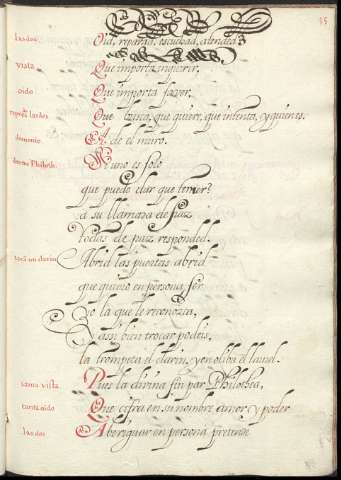 15
las dos Oia, repara, escuchad, atended
vista Que importa inquirir.
oido Que importa saver.
las dos Que busca, que quiere, que intenta, y quienes.
demonio A de el muro.
Si uno es solo
que puede dar que temer?
a su llamada de paz
todas de paz responded.
toca un clarin Abrid las puertas abrid
que quiero en persona ser
yo la que le reconozca,
y assi bien trocar podeis,
la trompeta el clarin, y en oliba el laurel.
canta vista Pues la divina sin par Philothea,
canta oido Que cifra en su nombre amor, y poder
las dos Aberiguar en persona pretende